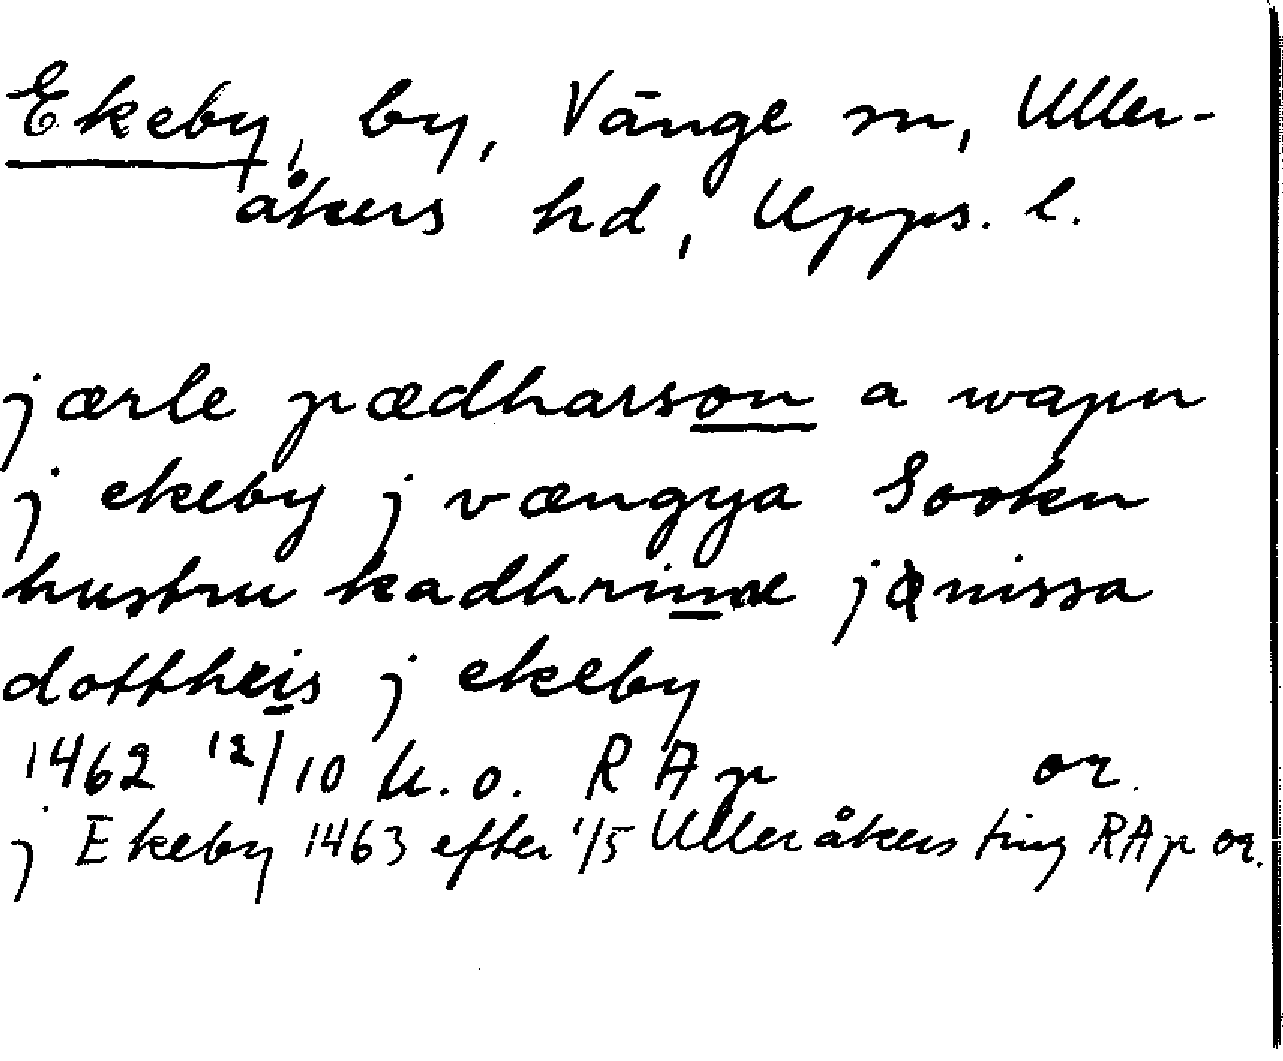 Ekeby, by, Vänge sn, Uller-
åkers hd, Upps. l.
jærle pædharson a wapn
j ekeby j vængya Sookn
hustru kadhrinæ jönissa
dottheis j ekeby
1462 12/10 u.o. RAp or.
j Ekeby 1463 efter 1/5 Ulleråkers ting RAp or.